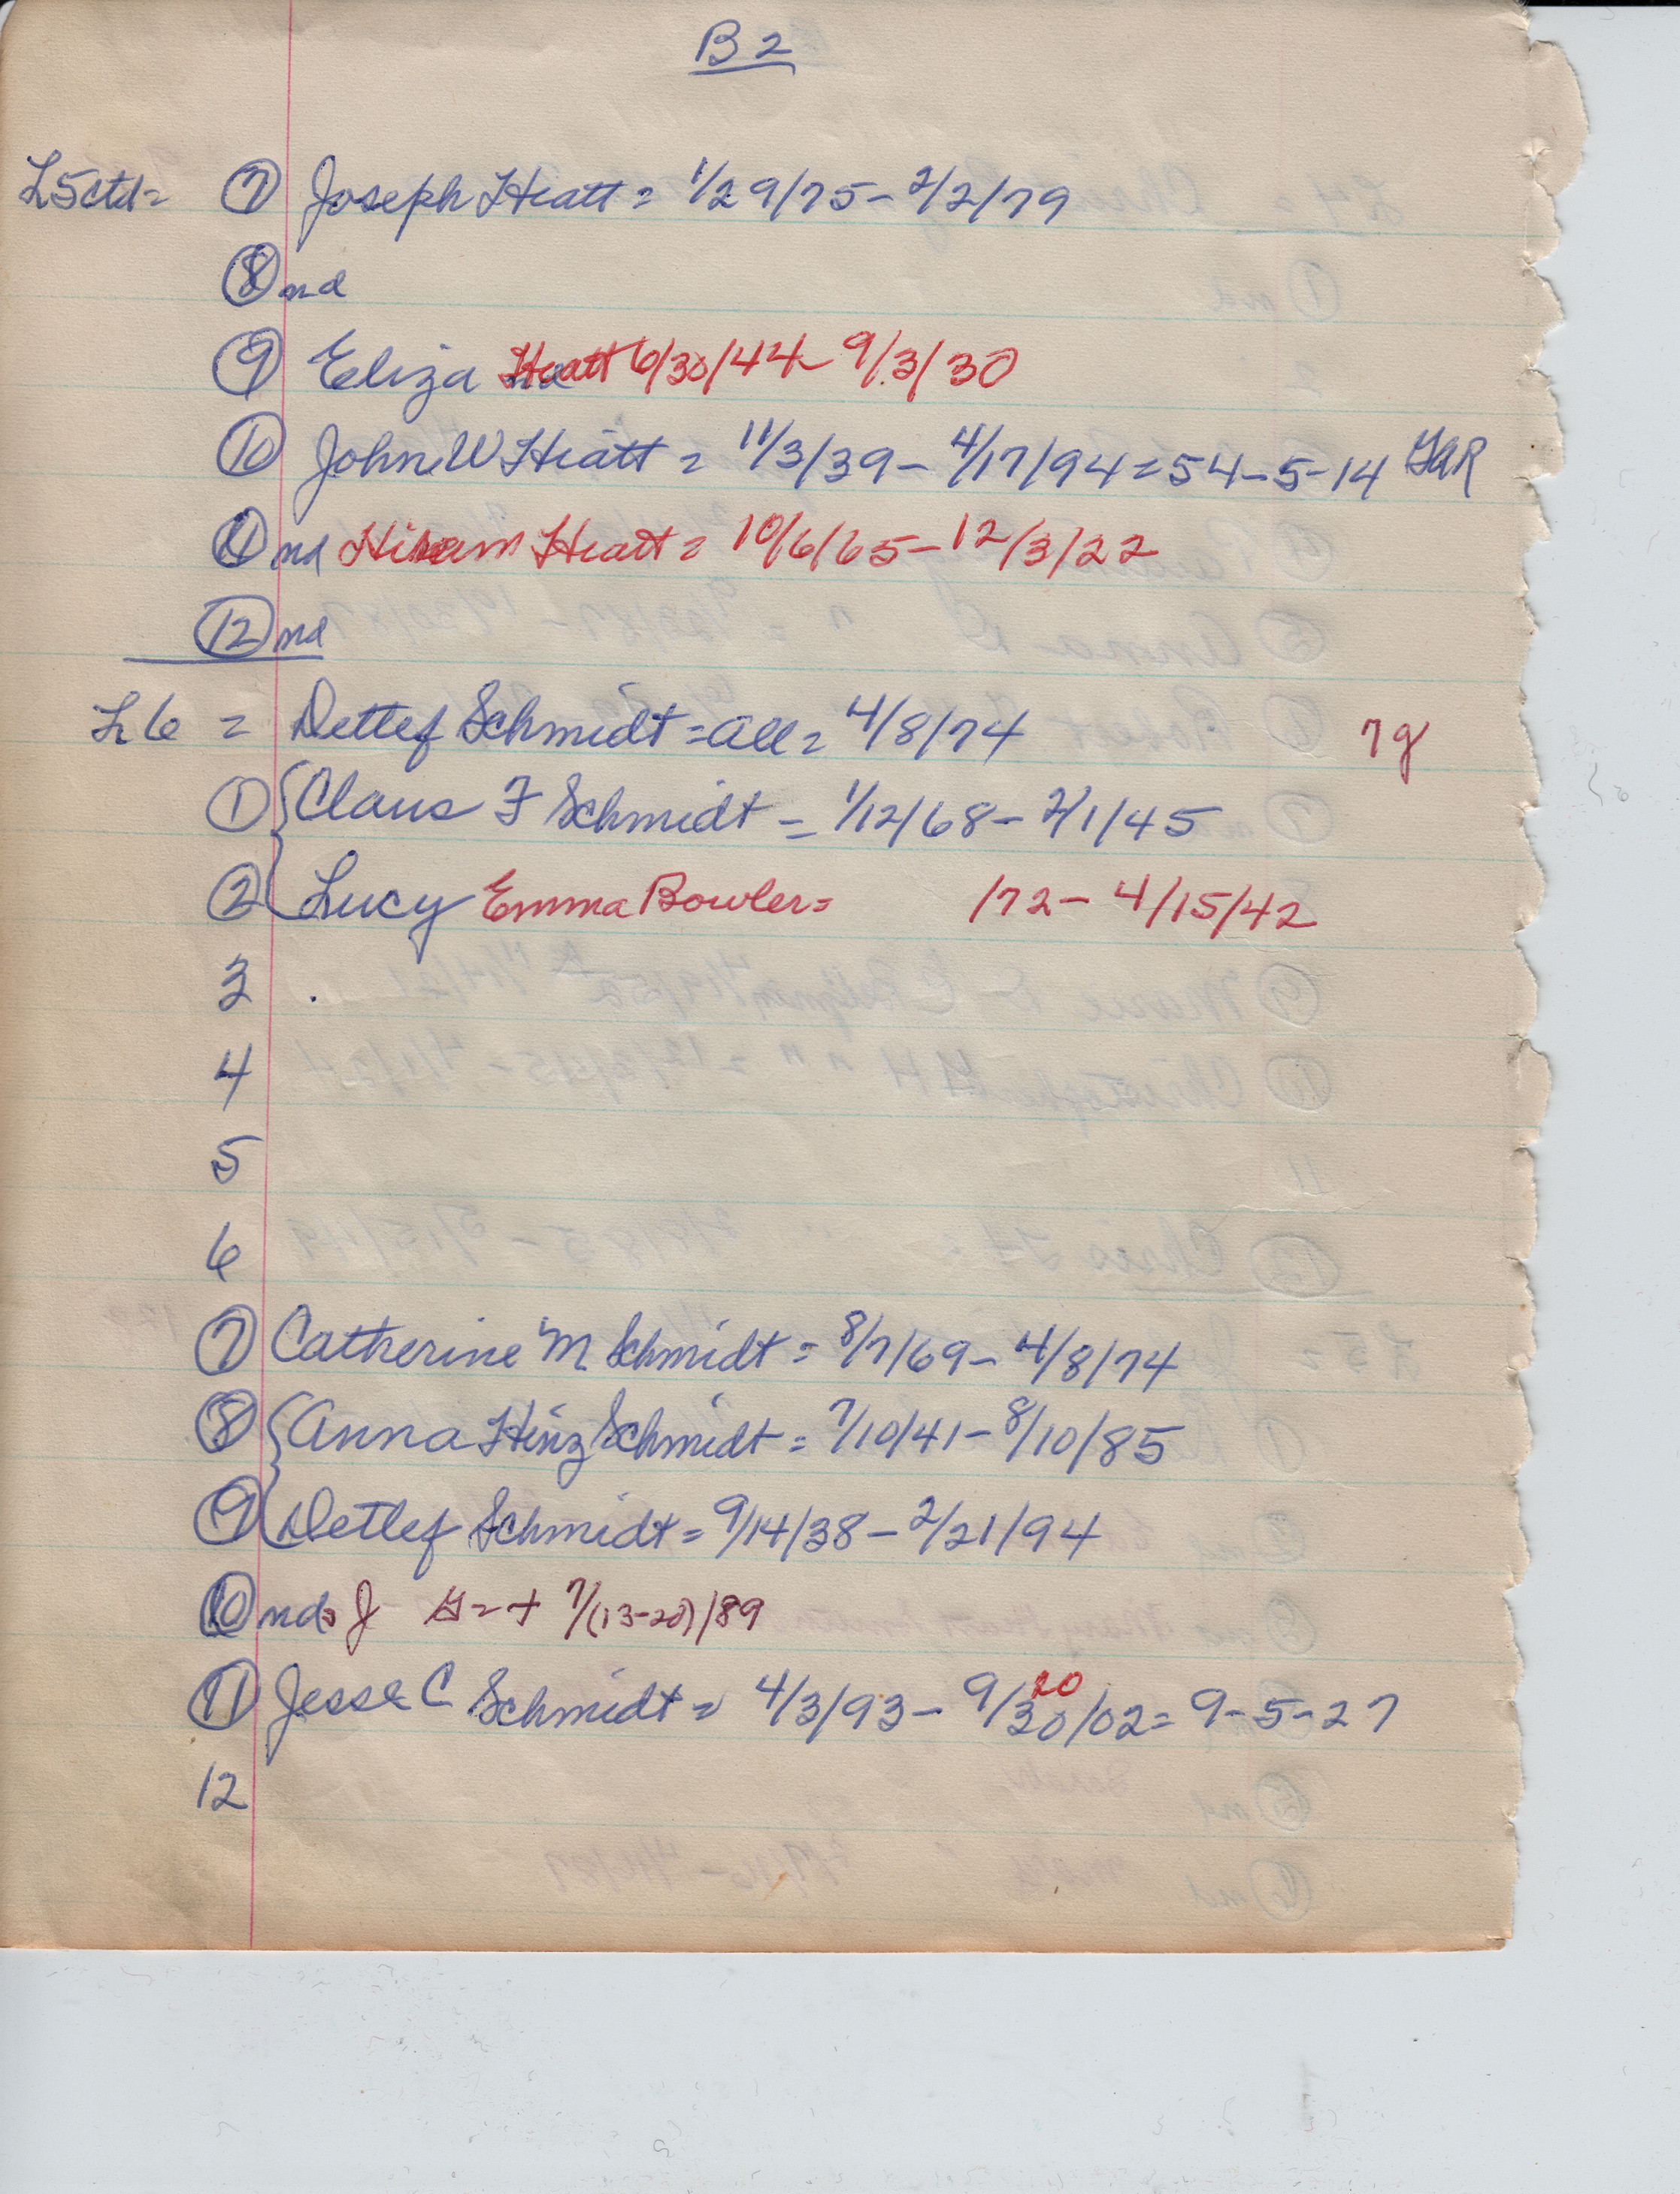 B2
L5ctd= 7 Joseph Hiatt = 1/29/75 - 2/2/79
8 nd
9 Eliza Hiatt 6/30/44 - 9/3/30
10 John W Hiatt = 11/3/39 - 4/17/94 = 54-5-14 GAR
11 nd Hiram Hiatt = 10/6/65 - 12/3/22
12 nd
L6 = Detlef Schmidt = all = 4/8/74 7g
1 Claus F Schmidt = 1/12/68 - 2/1/45
2 Lucy Emma Bowler = /72 - 4/15/42
3 .
4
5
6
7 Catherine M Schmidt = 8/7/69 - 4/8/74
8 Anna Hinz Schmidt = 7/10/41 - 8/10/85
9 Detlef Schmidt = 9/14/38 - 2/21/94
10 nd = J = + 7/(13-20)/89
11 Jesse C Schmidt = 4/3/93 - 9/30/02 = 9-5-27
20
12